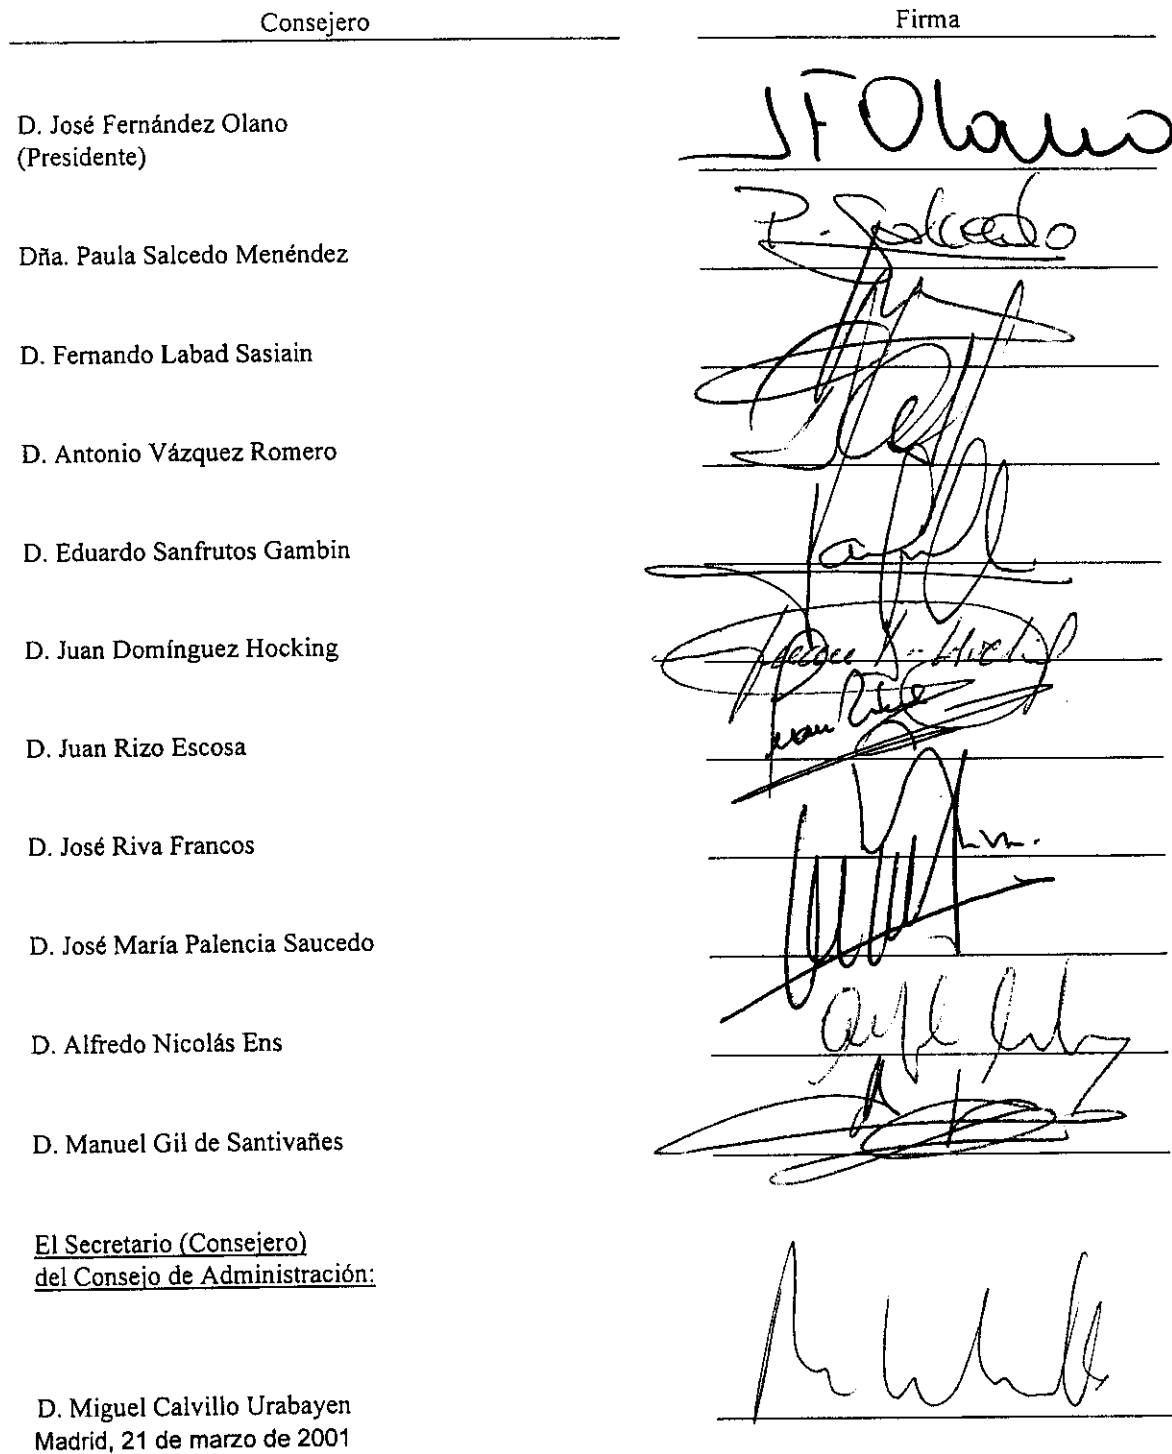 Consejero
Firma
D. José Fernández Olano
(Presidente)
JFOlano
Dña. Paula Salcedo Menéndez
P. Salcedo
D. Fernando Labad Sasiain
D. Antonio Vázquez Romero
D. Eduardo Sanfrutos Gambin
D. Juan Domínguez Hocking
D. Juan Rizo Escosa
D. José Riva Francos
D. José María Palencia Saucedo
D. Alfredo Nicolás Ens
D. Manuel Gil de Santivañes
El Secretario (Consejero)
del Consejo de Administración:
D. Miguel Calvillo Urabayen
Madrid, 21 de marzo de 2001